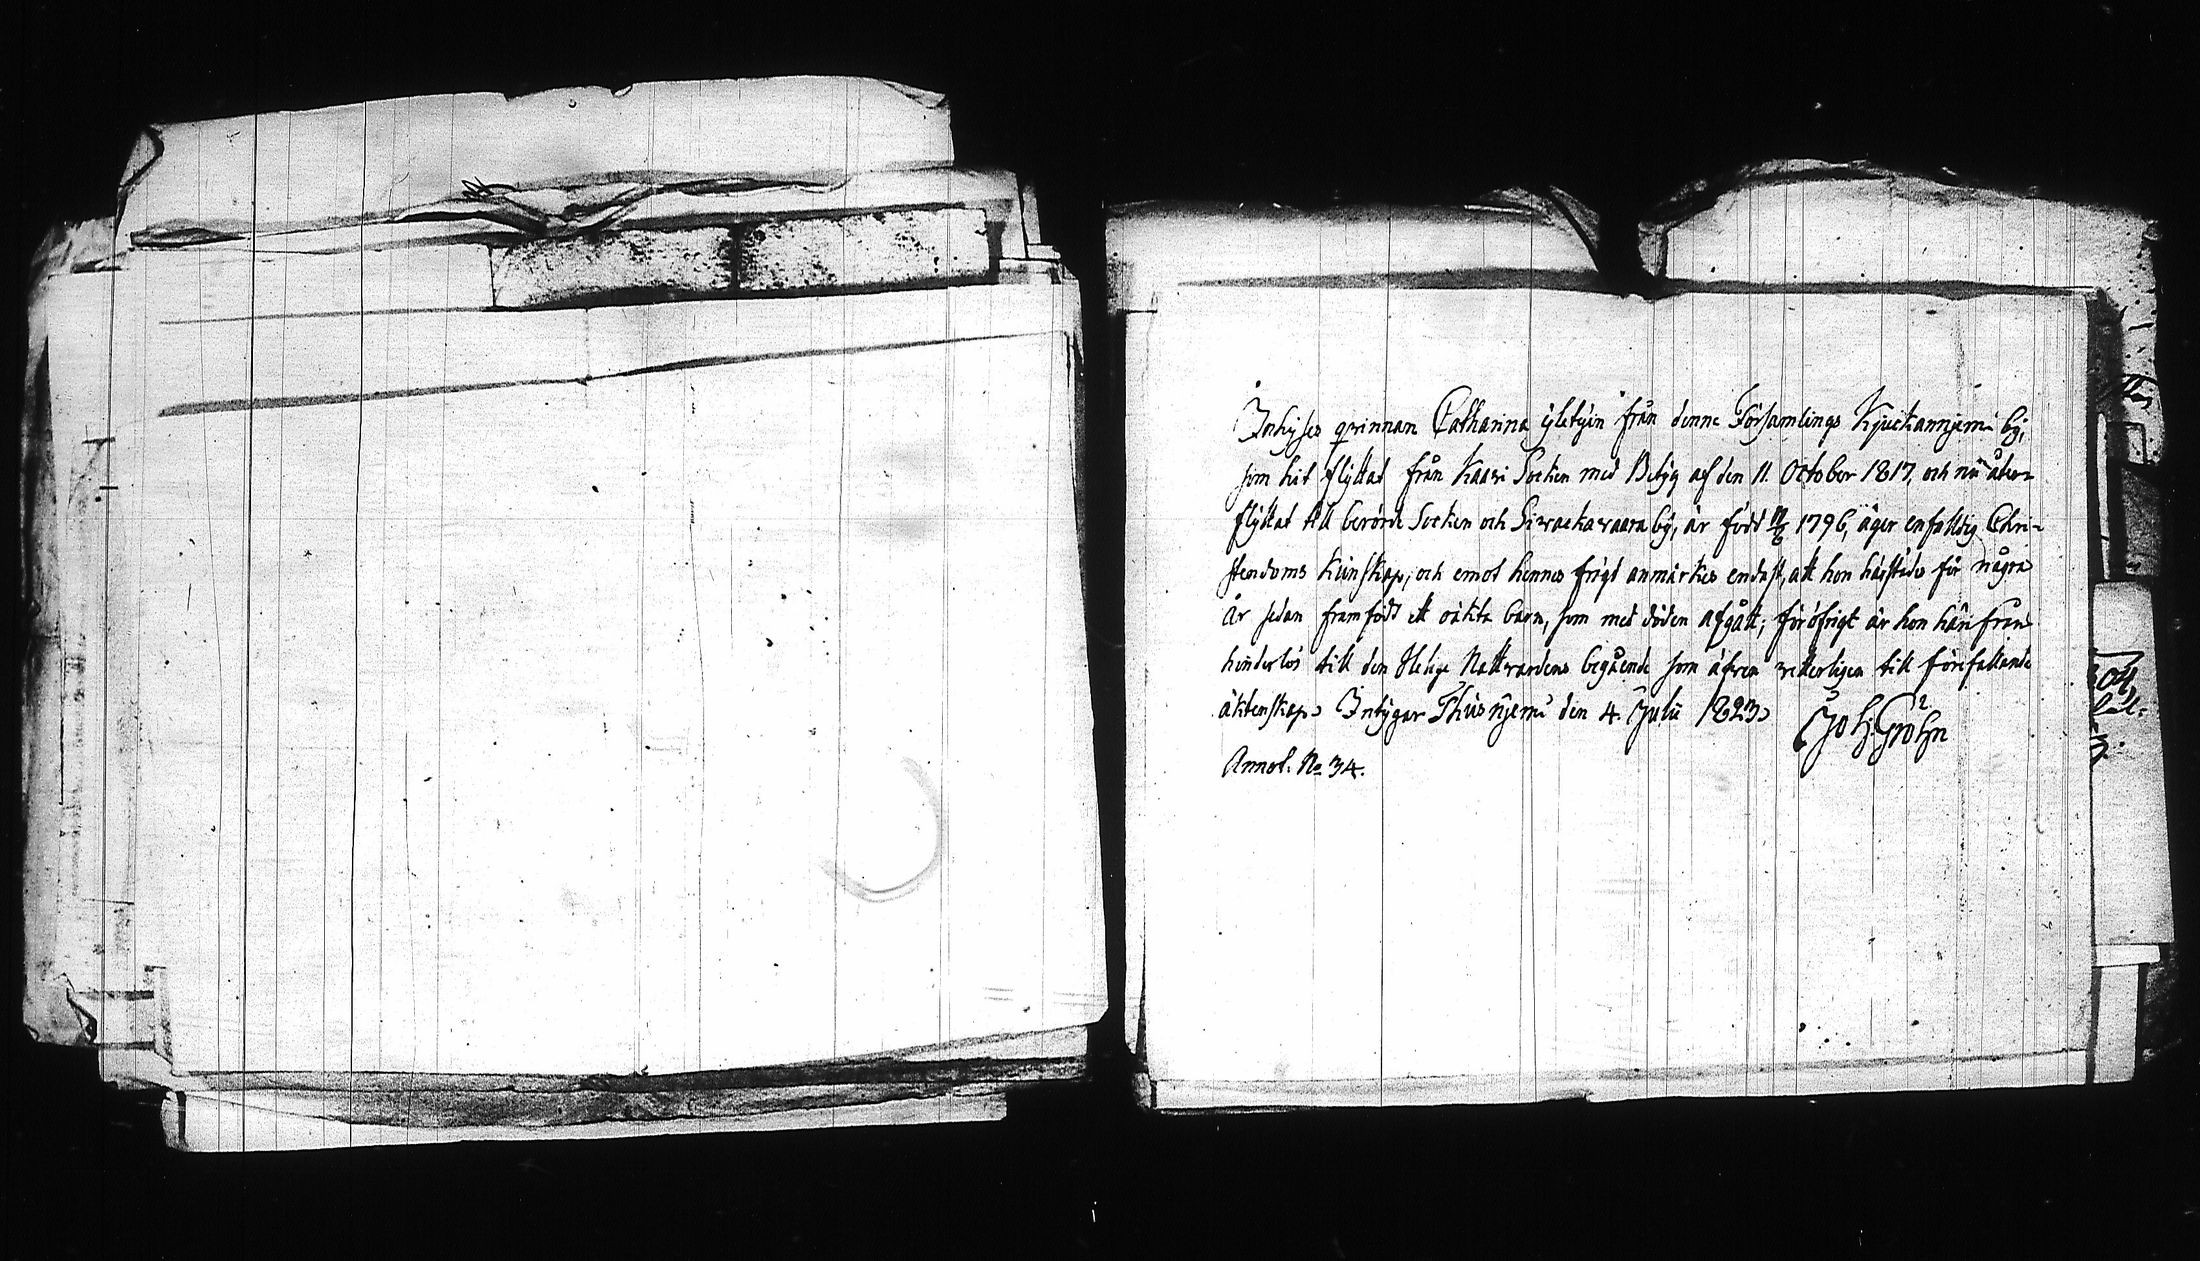 Inhyses qvinnan Catharina yletyin från denne Församlings Kjuckannjemi by,
som hit flyttat från Kaavi Socken med Betyg af den 11. October 1817, och nu åter-
flyttat till berörde Socken och Sivackavaara by, är född 1796, äger enfalldig Chri-
stendoms Kunskap; och emot hennes frägd anmärkes endast, att hon härstädes för några
År sedan framfödt ett oäkta barn, som med döden afgått; föröfrigt är hon hän från
hinderlös till den Helige Nattvardens begående som äfven vetterligen till förefallande
äktenskap. Intygar Thusnjemi den 4. Julii 1823.
Joh. Gröhn
Annot. No 34.